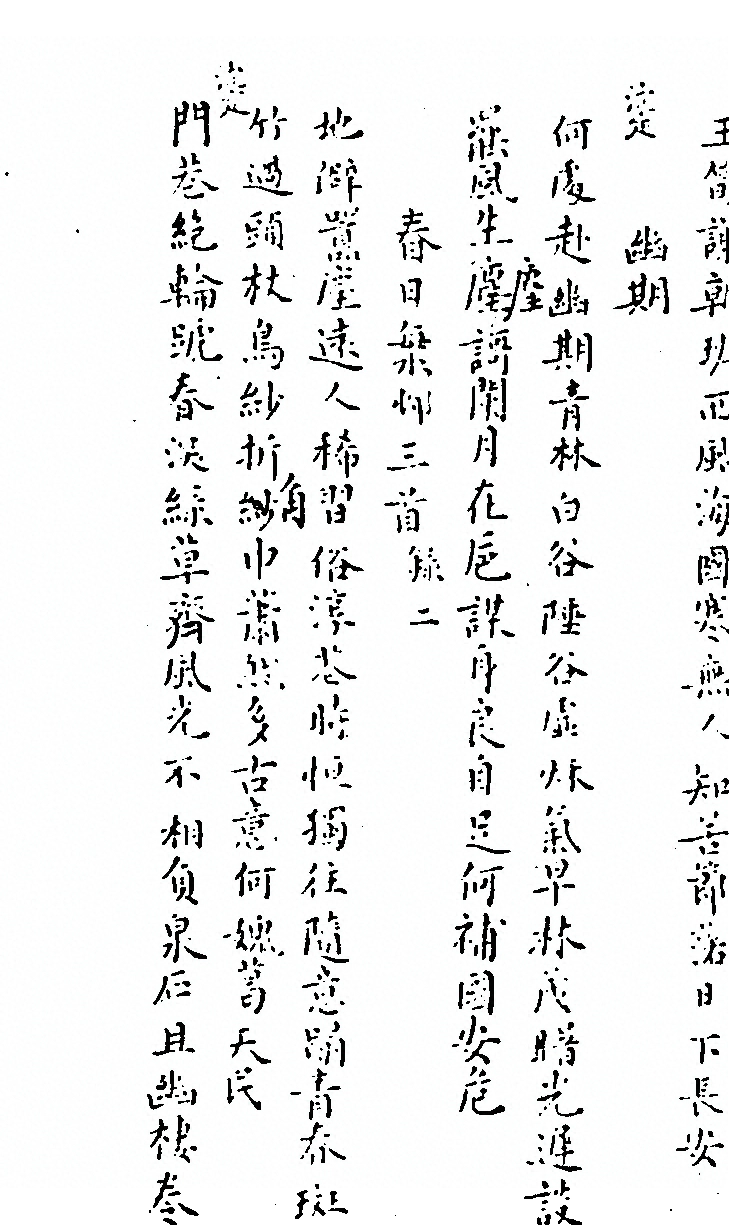 王筍謝朝班雨風海國寒無人知苦節落日下長安
选
幽期
何處赴幽期青林白谷陲谷虛秋氣早林茂曙光遲設
灌風生麈 麈 譚閑月在巵謀身良自足何補國安危
春日楽郊三首録二
地僻囂塵遠人稀習俗淳花時恒獨往隨意踏青春斑
竹過頭杖烏紗折 角 巾蕭然多古意何媿葛天民
选
門巷絶輪號春深緑草齊風光不相負泉石且幽棲巻